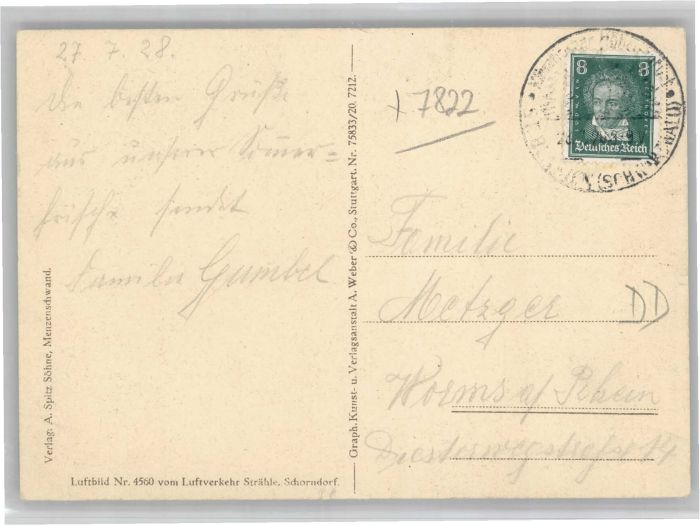 27. 7. 28.
Die besten Grüße
aus unserer Sommer=
frische sendet
Familie Gumbel
Verlag: A. Spitz Söhne, Menzenschwand.
Luftbild Nr. 4560 vom Luftverkehr Strähle, Schorndorf.
Graph. Kunst- u. Verlagsanstalt A. Weber & Co., Stuttgart. Nr. 75833/20. 7212.
+7822
8 8
Deutsches Reich
Familie
Metzger
DD
Worms a/Rhein
Diesterwegstraße